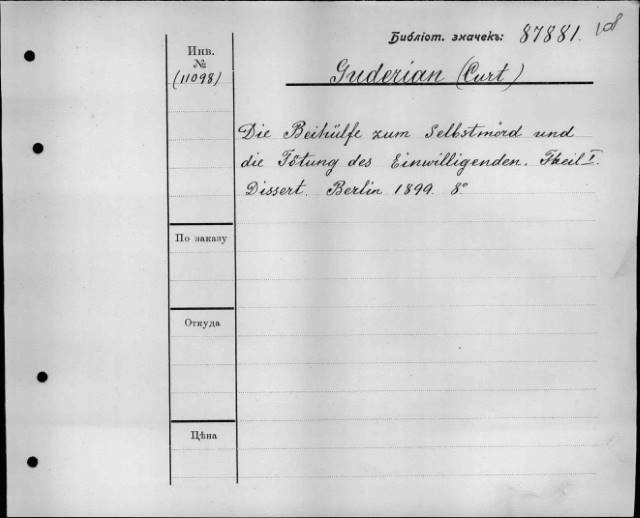 Библіот. значекъ: 87881. 108
Инв.
№
(11098)
Guderian (Curt)
Die Beihülfe zum Selbstmord und
die Tötung des Einwilligenden. Theil I.
Dissert. Berlin 1899. 8°
По заказу
Откуда
Цѣна